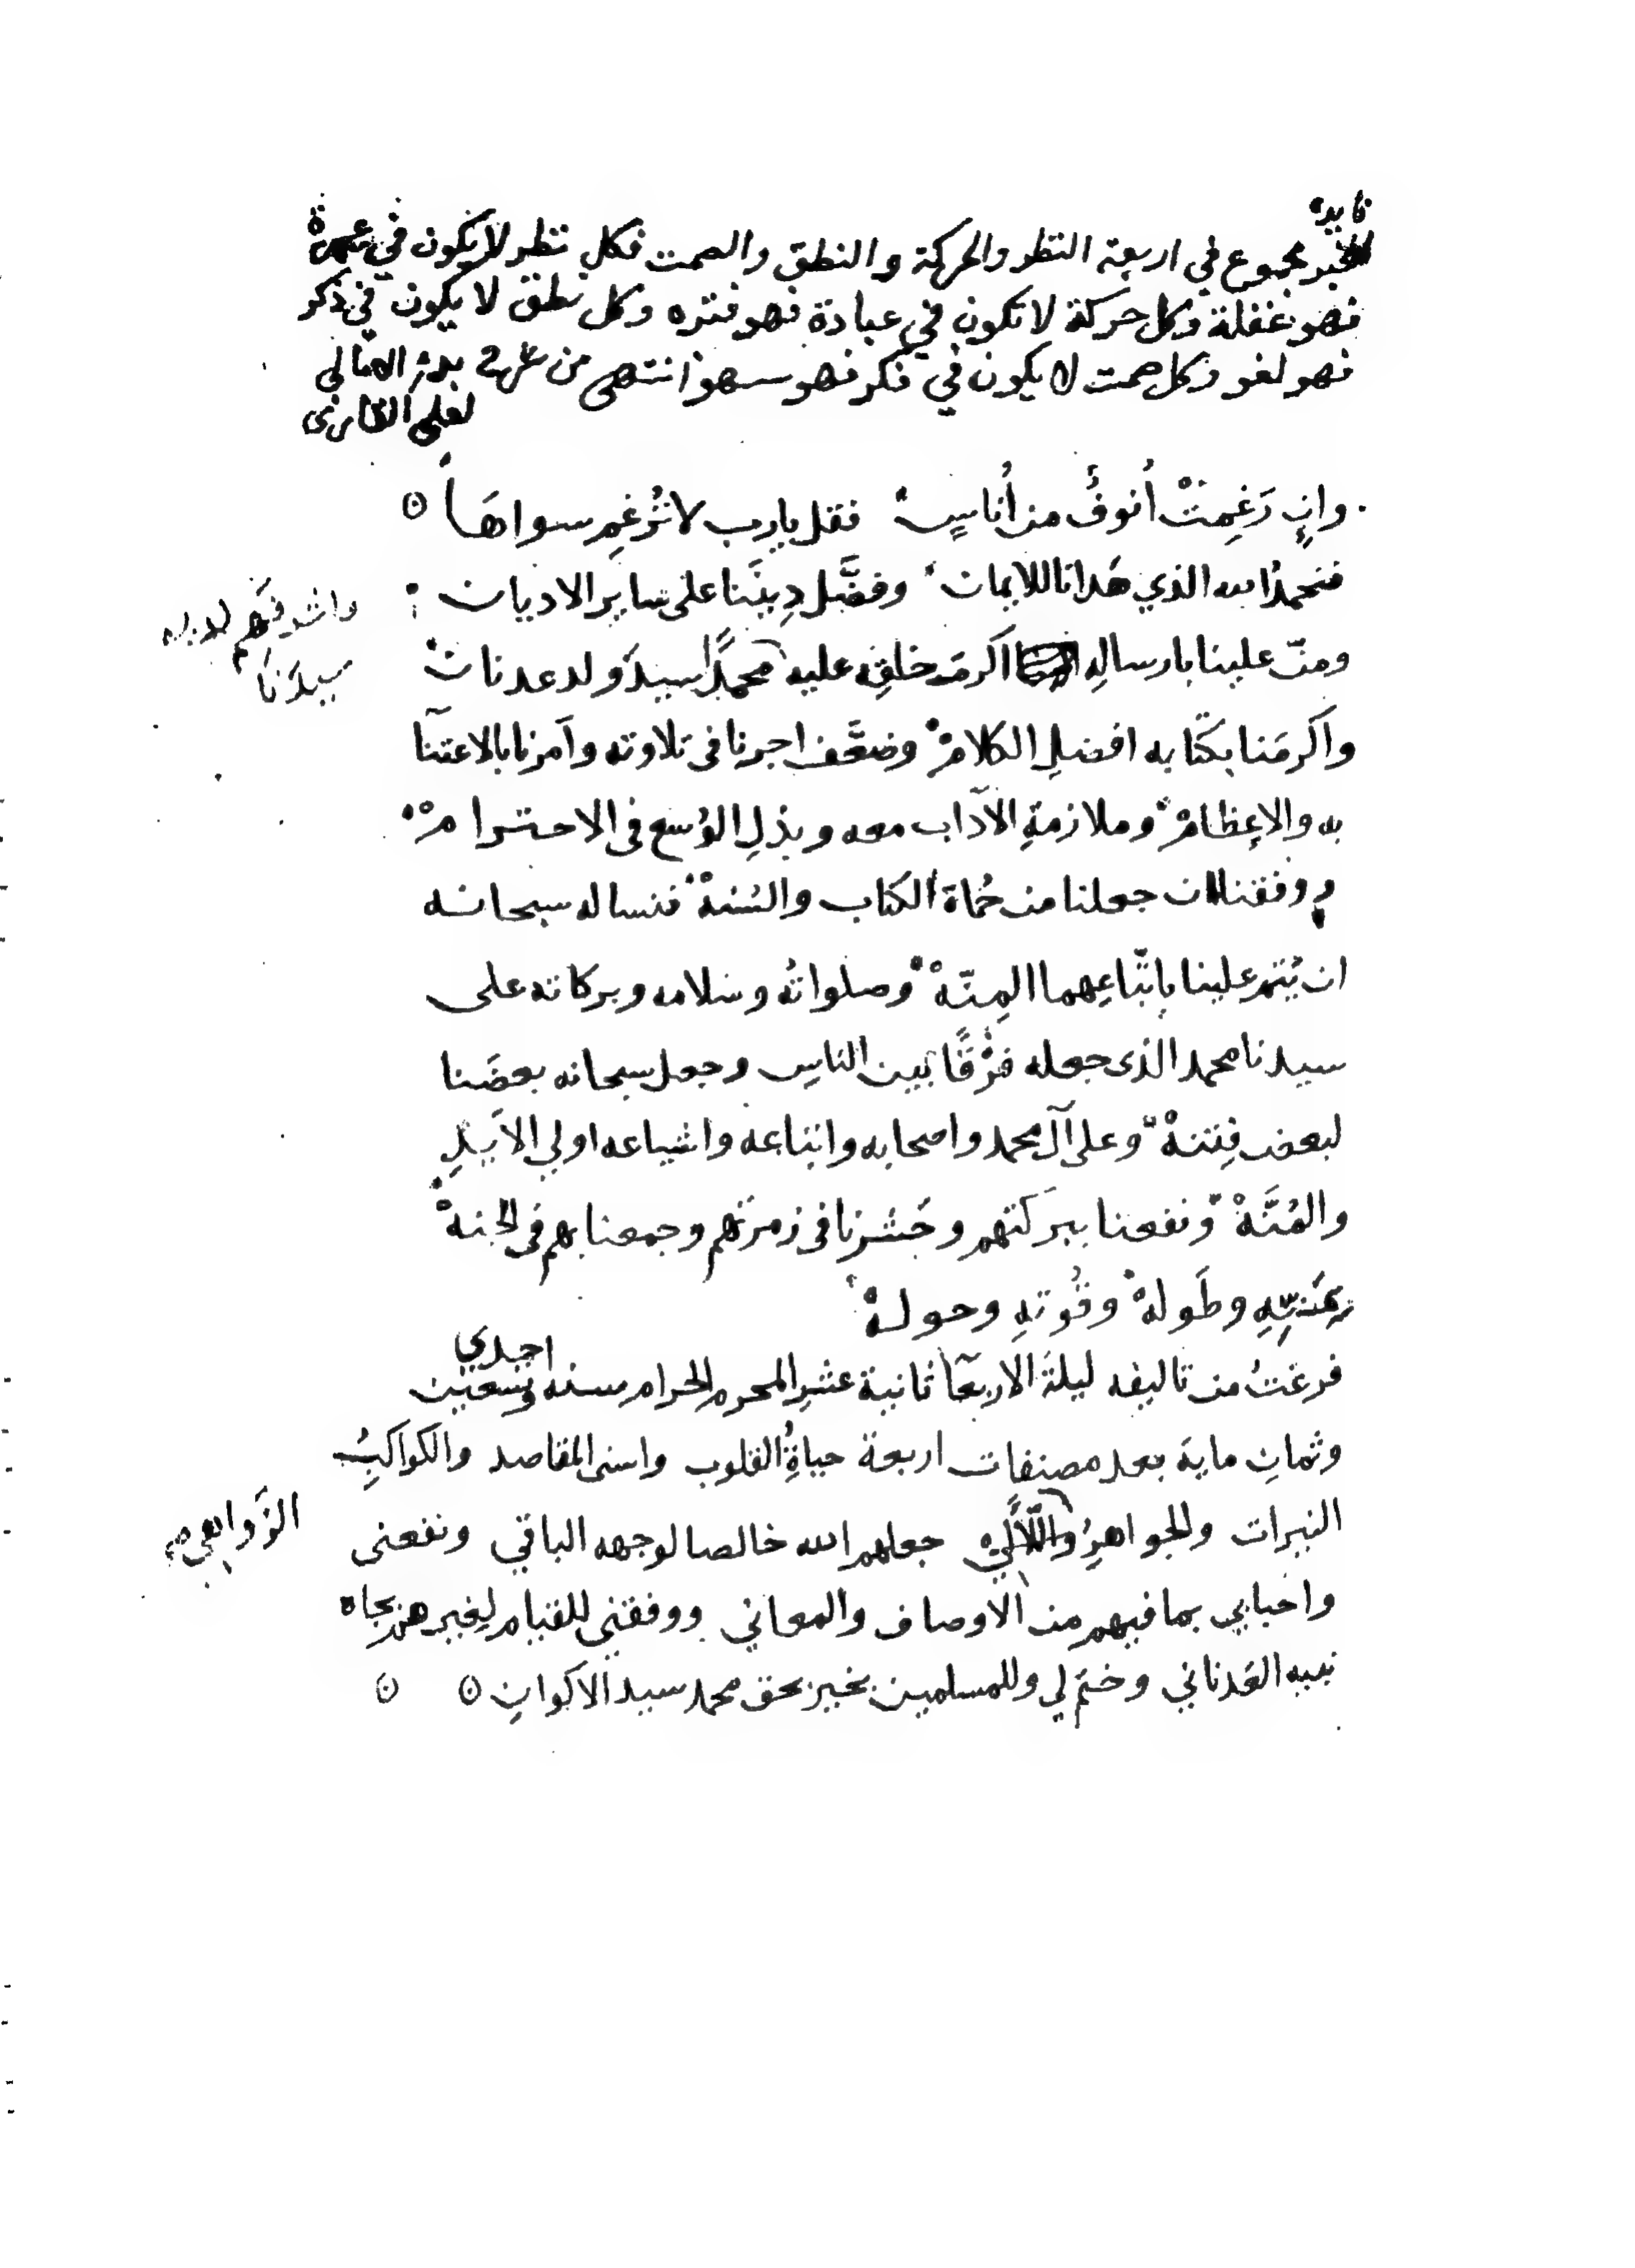 فايدة
الخير مجموع في اربعة النظر والحركة والنطق والصمت فكل نظر لا يكون في عبرة
فهو غفلة وكل حركة لا تكون في عبادة فهو فتره وكل نطق لا يكون في ذكر
فهو لغو وكل صمت لا يكون في فكر فهو سهو انتهى من شرح بدء الامالي
لعلي القارى
وانٍ رَغِمَتْ أنوفُ من أُناسٍ فقل يارب لا تُرغِم سواهَا
فنحمدُ الله الذي هَدانا للايمان وفضَّل دِينَنا على ساير الاديان
ومنّ علينا بارسالِه اكرمَ خلقِه عليه محمدًا سيدَ ولد عدنان
واشرفَهم لديه
سيدَنا
واكرمَنا بكتابه افضلِ الكلامْ وضعَّف اجرنا فى تلاوته وآمرنا بالاعتنآ
به والاعِظامْ وملازمةِ الآداب معه وبذلِ الوُسع فى الاحترامْ
ووفقنا ان جعلنا من حُماة الكتاب والسُنةْ فنساله سبحانه
ان يُتم علينا باتّباعِهما المِنّةْ وصلواتُه وسلامه وبركاته على
سيدنا محمد الذى جعله فرْقًا بين الناسِ وجعل سبحانه بعضَنا
لبعض فِتنةْ وعلى آل محمد واصحابه واتباعه واشياعه اولي الاَيدِ
والمُنَّةْ ونفعنا ببركتهم وحَشرنا فى زمرتهم وجمعنا بهم فى الجنةْ
بمَنِّهِ وطَولهْ وقُوتهِ وحولهْ
فرغتُ من تاليفه ليلةَ الاربعآ ثانية عشرِ المحرم الحرام سنه احدي وتسعين
وثمانِ ماية بعد مصنفات اربعة حياةُِ القلوب واسنى المقاصد والكواكبُِ
النيرات والجواهرُِ واللّآلي جعلهم الله خالصا لوجهه الباقي ونفعنى
واحبابي بما فيهم من الاوصاف والمعاني ووفقني للقيام لغيرهم بجاه
نبيه العَدناني وختَم لي وللمسلمين بخير بحق محمد سيد الاكوانِ